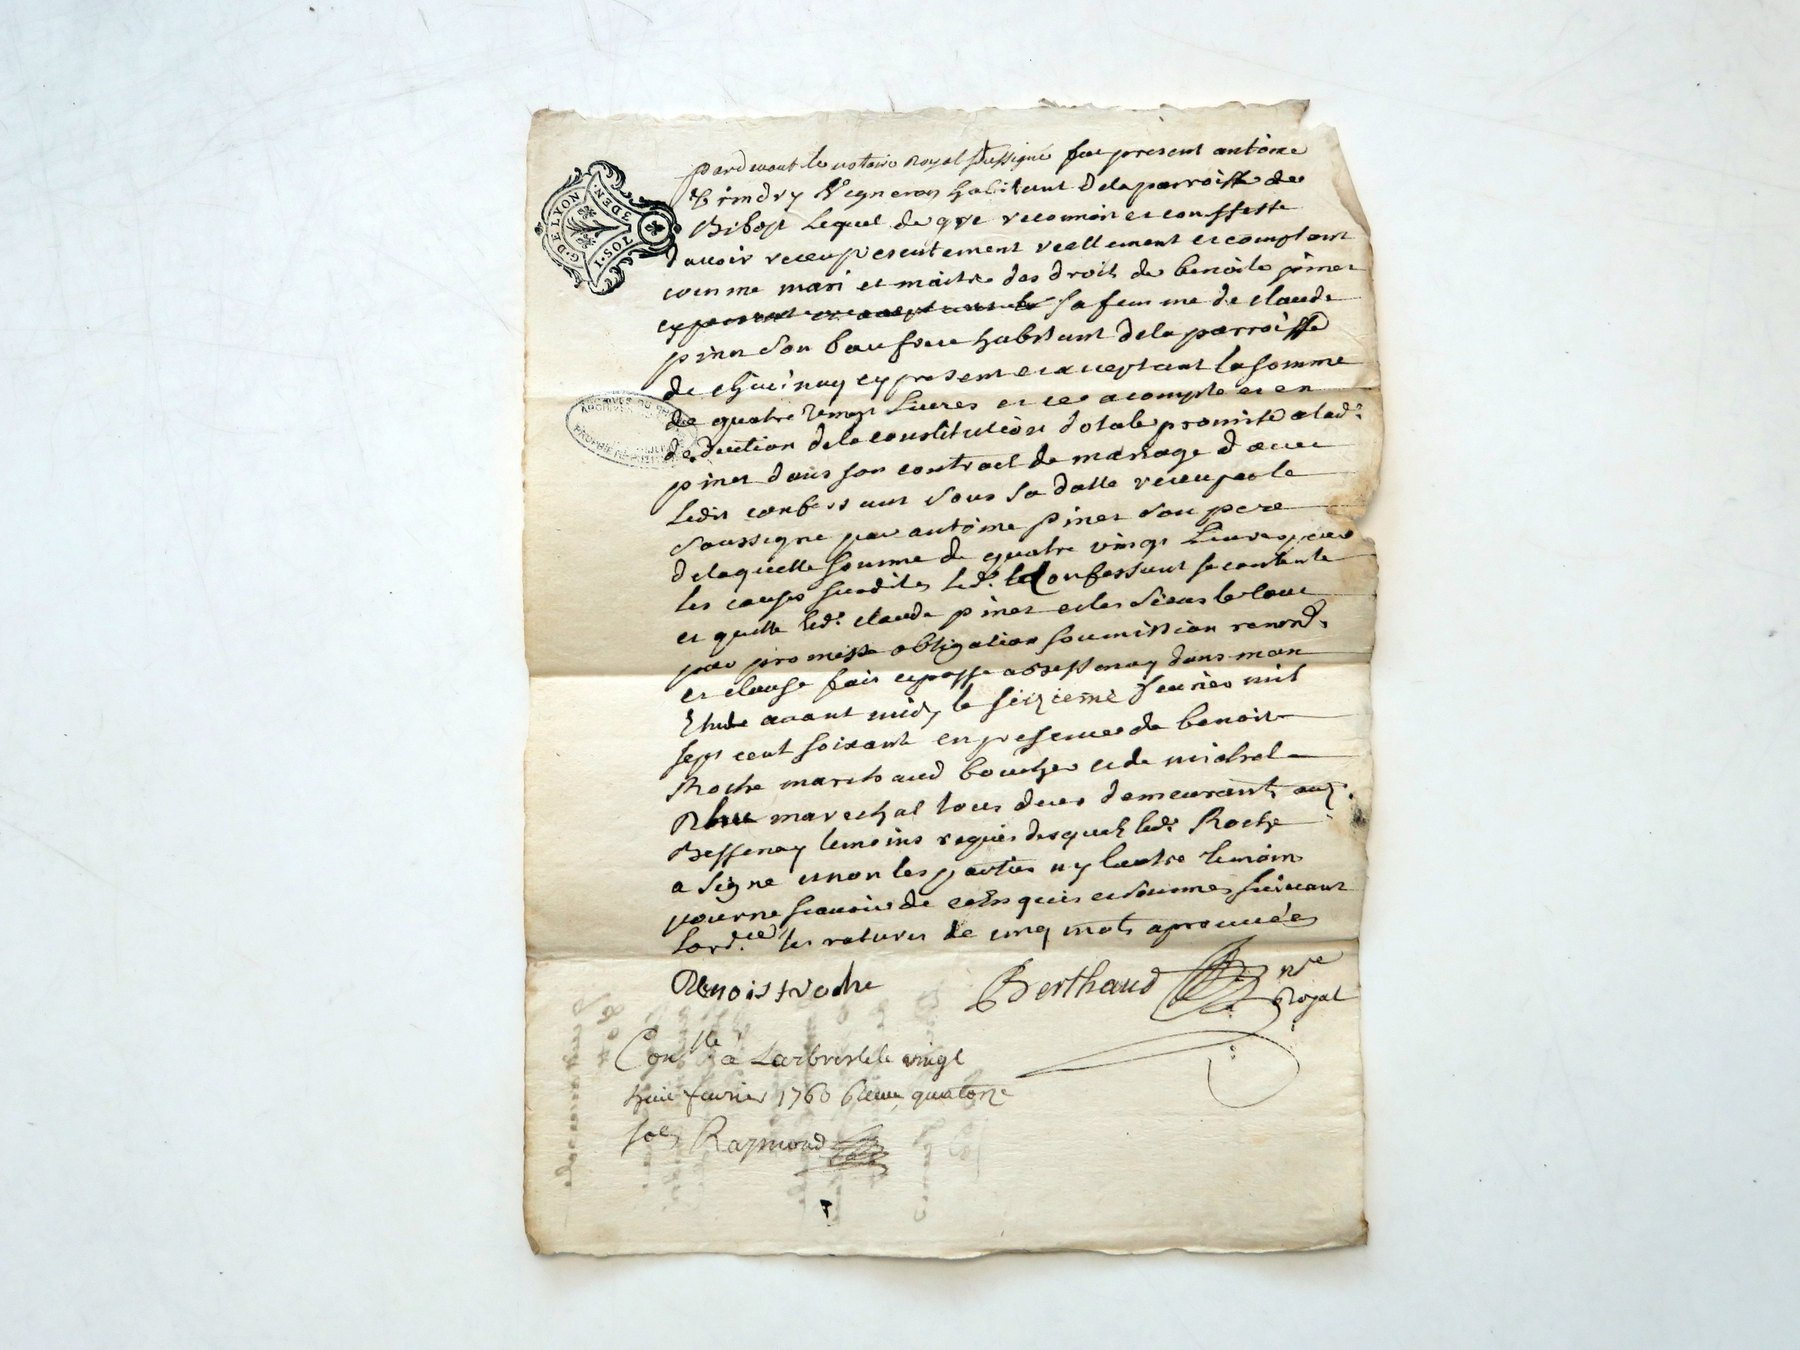 G. DE LYON.
1. SOL 3 DEN.
pardevant le notaire Royal soussigné fut present antoine
vigneron habitant dela parroisse de
Bibost Lequel de gré reconnoit et conffesse
davoir receu presentement reellement et comptant
comme mari et maitre des droits de benoite pinet
sa femme de claude
pinet son beau frere habitant dela parroisse
de cy present et acceptant la somme
de quatre vingt Livres et ce a compte et en
deduction dela constitution dotale promise a lad.e
pinet dans son contract de mariage davec
Ledit confessant sous sa datte receu par le
soussigné par antoine pinet son pere
delaquelle somme de quatre vingt Livres pour
les causes susdites led.t confessant se contente
et quitte led.t claude pinet et les siens le tout
par promesse obligation soumission renond.
et clause fait et passé a Bessenay dans mon
Etude avant midy le seizieme fevrier mil
sept cent soixante en presence de benoit
Roche marchand boucher et de michel
marechal tous deux demeurants aud.
Bessenay temoins requis desquels led.t Roche
a signé et non les parties ny lautre temoin
pour ne scavoir de ce enquis et sommes suivant
lord.ce les ratures de cinq mots aprouvées
Benoist roche
Berthaud n.re
Royal
Con.lé a Larbresle le vingt
huit fevrier 1760 Receu quatorze
sols Raymond